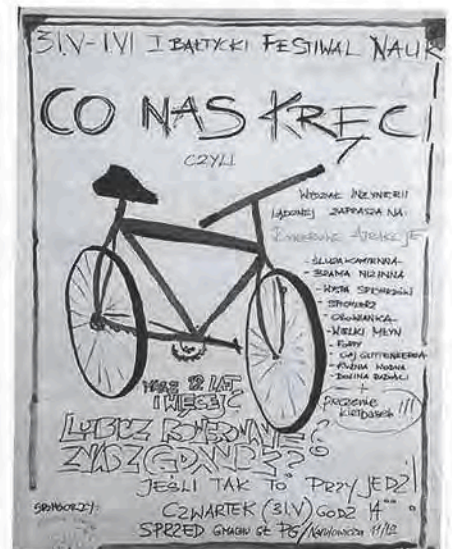 31.V-1.VI I BAŁTYCKI FESTIWAL NAUK
CO NAS KRĘCI
CZYLI
WYDZIAŁ INŻYNIERII
LĄDOWEJ ZAPRASZA NA:
ROWEROWE ATRAKCJE
- ŚLUZA KAMIENNA
- BRAMA NIZINNA
- WYSPA SPICHRZÓW
- SPICHLERZ
- OŁOWIANKA
- WIELKI MŁYN
- FORTY
- GAJ GUTTENBERGA
- KUŹNIA WODNA
- DOLINA RADOŚCI
+
PIECZENIE
KIEŁBASEK !!!
MASZ 12 LAT
I WIĘCEJ?
LUBISZ ROWEROWANIE?
ZNASZ GDAŃSK?
JEŚLI TAK TO PRZYJEDŹ!
CZWARTEK (31.V) GODZ 14
SPRZED GMACHU GŁ PG / Narutowicza 11/12
SPONSORZY: